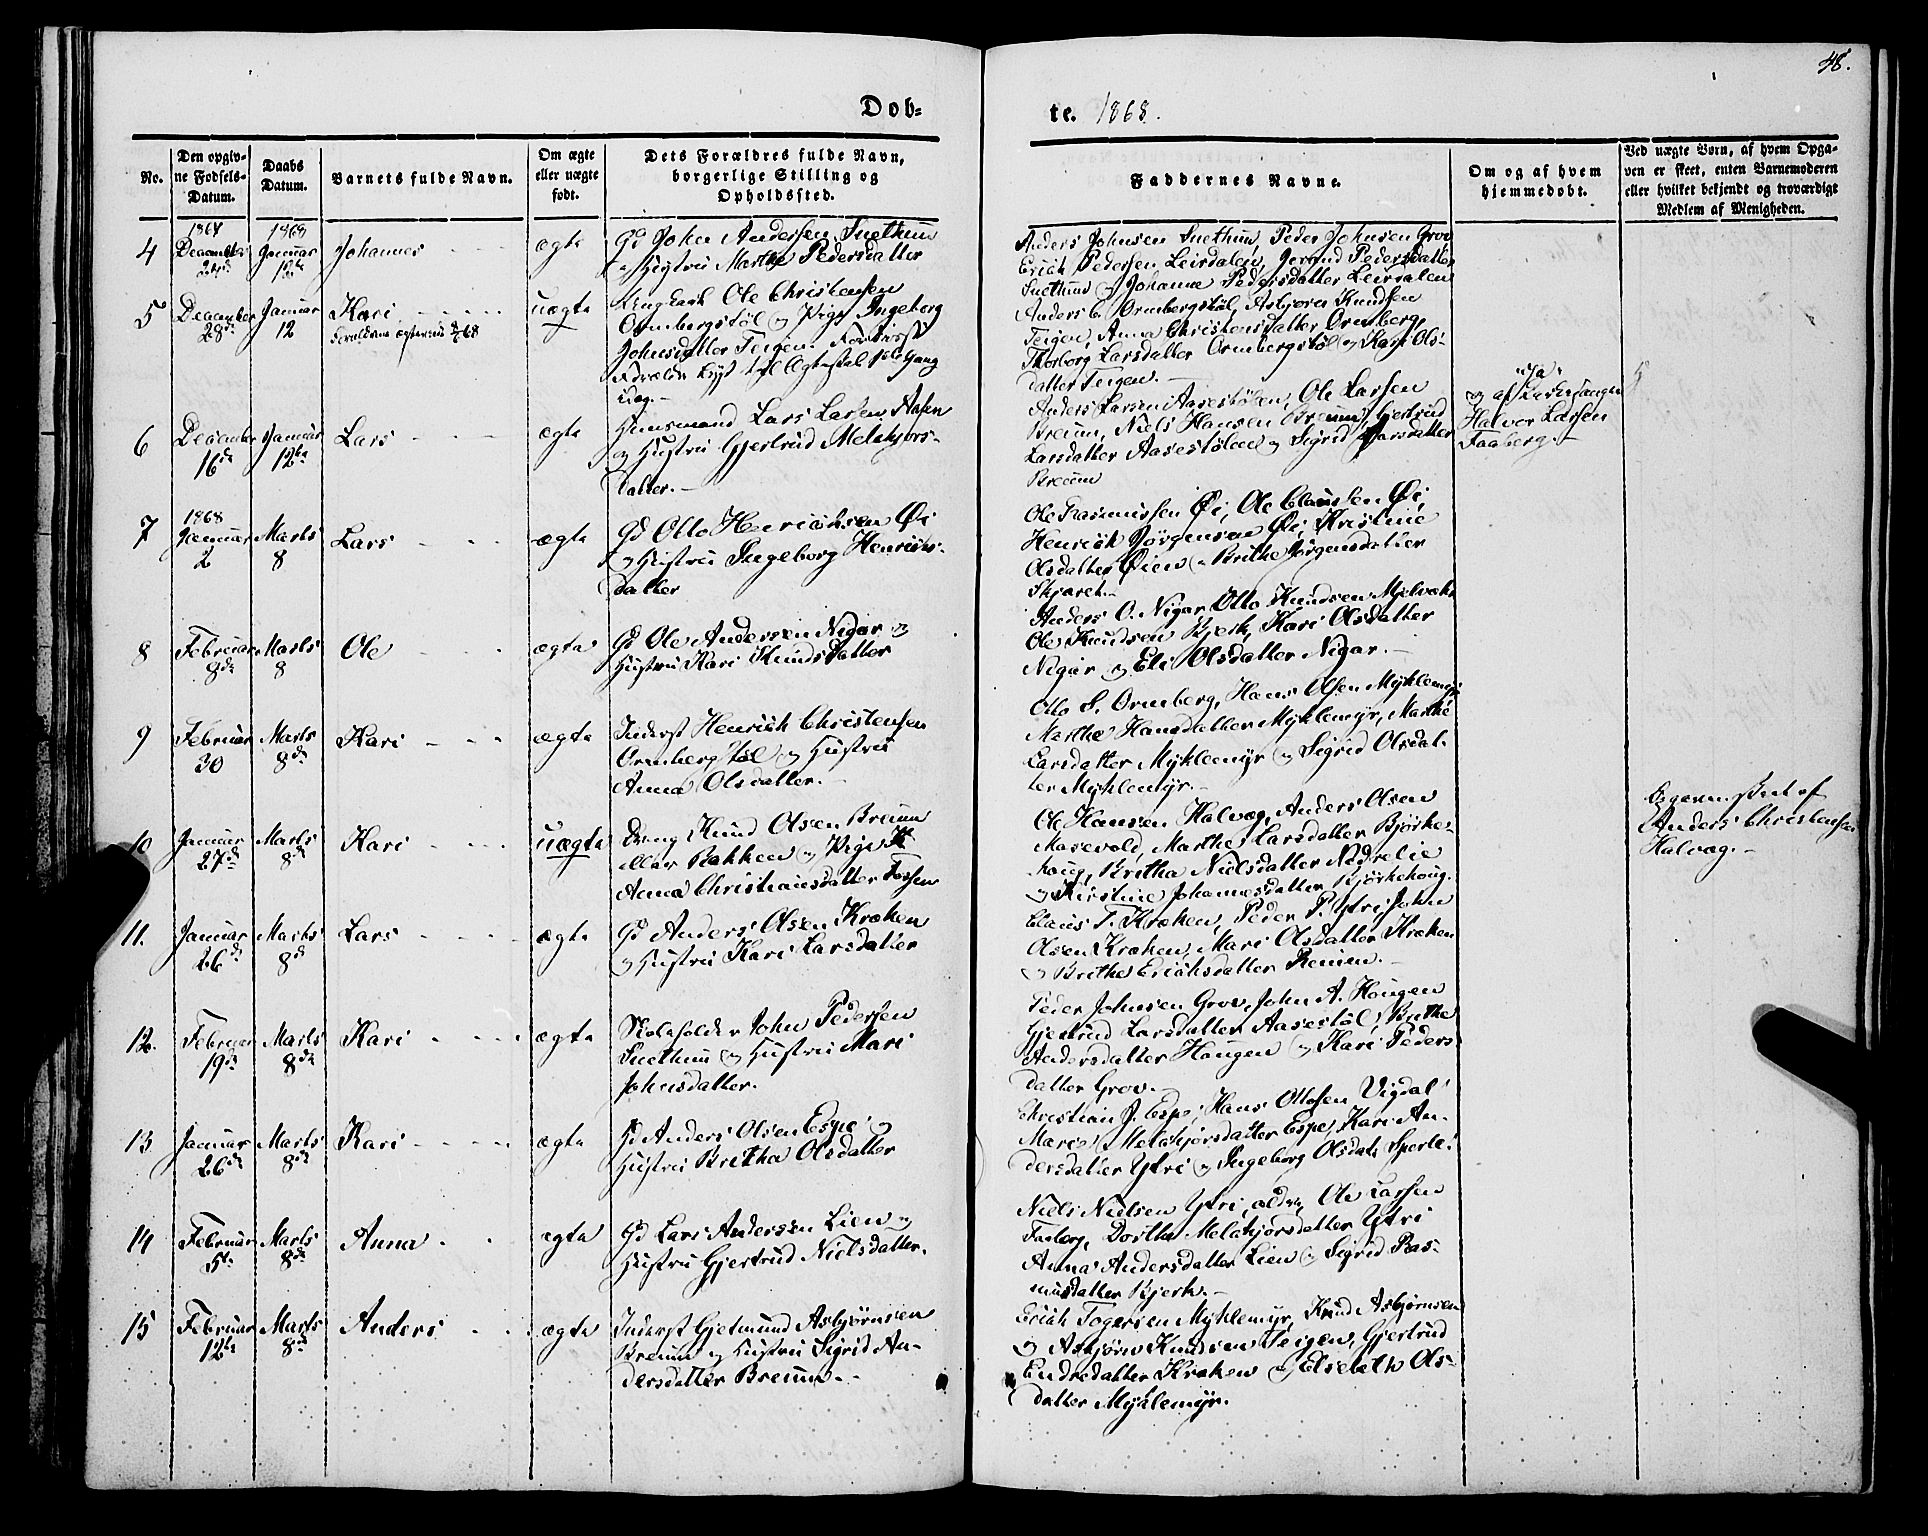 48.
Dob-
te. 1868.
No.
Den opgiv-
ne Fødsels-
Datum.
Daabs
Datum.
Barnets fulde Navn.
Om ægte
eller uægte
født.
Dets Forældres fulde Navn,
borgerlige Stilling og
Opholdssted.
Faddernes Navne.
Om og af hvem
hjemmedøbt.
Ved uægte Børn, af hvem Opga-
ven er skeet, enten Barnemoderen
eller hvilket bekjendt og troværdigt
Medlem af Menigheden.
1867 1868
4 December 24de Januar 12te Johannes ægte
Gd John Andersen Snethun
og Hustru Marthe Pedersdatter
Anders Johnsen Snethun, Peder Johnsen Grov
Erich Pedersen Leirdalen, Pedersdatter
Snethun og Johanne Pedersdatter Leirdalen
5 December 28de Januar 12 Kari uægte
Ungkarl Ole Christensen
Ormbergstøl og Pige Ingeborg
Johnsdatter Teigen.
Anders C. Ormbergstøl, Asbjørn Knudsen
Teigen, Anna Christensdatter Ormberg,
Thorborg Larsdatter Ormbergstøl og Kari Ols-
datter Teigen.
6 December 16de Januar 12te Lars ægte
Huusmand Lars Larsen Aasen
og Hustru Gjertrud Melchiors-
datter.
Anders Larsen Aasestølen, Ole Larsen
Breum, Niels Hansen Breum, Gjertrud
Larsdatter Aasestølen og Sigrid Larsdatter
Breum
"Ja"
og af Kirkesanger
Halvor Larsen
Faaberg.
1868
7 Januar 2 Marts 8 Lars ægte
Gd Otto Henrichsen Øi
og Hustru Ingeborg Henrichs-
datter
Ole Rasmussen Øi, Ole Claussen Øi,
Henrich Jørgensen Øi, Kristine
Olsdatter Øien og Brithe Jørgensdatter
Skjæret.
8 Februar 8de Marts 8 Ole ægte
Gd Ole Andersen Nigar og
Hustru Kari Knudsdatter
Anders O. Nigar, Otto Knudsen
Ole Knudsen Bjerk, Kari Olsdatter
Nigar og Eli Olsdatter Nigar.
9 Februar 30 Marts 8de Kari ægte
Inderst Henrich Christensen
Ormbergstøl og Hustru
Anna Olsdatter.
Otto S. Ormberg, Hans Olsen Myklemyr
Marthe Hansdatter Myklemyr, Marthe
Larsdatter Myklemyr og Sigrid Olsdat-
ter Myklemyr.
10 Januar 27de Marts 8de Kari uægte
Knud Olsen Breum
Bakken og Pige
Anna Christiansdatter Fossen
Ole Hansen Halvæg, Anders Olsen
Masevold, Marthe Larsdatter Bjørke-
houg, Britha Nielsdatter Nedrelie
og Kirstine Johannesdatter Bjørkehoug.
Anders Christensen
Halvæg.
11. Januar 26de Marts 8de Lars ægte
Gd Anders Olsen Kroken
og Hustru Kari Larsdatter
Claus T. Kroken, Peder P. Ytri, John
Olsen Kroken, Mari Olsdatter Kroken
og Brithe Erichsdatter Breum.
12. Februar 19de Marts 8de Kari ægte
Skoleholder John Pedersen
Snethun og Hustru Mari
Johnsdatter.
Peder Johnsen Grov, John A. Hougen
Gjertrud Larsdatter Aasestøl, Brithe
Andersdatter Hougen og Kari Peders-
datter Grov.
13 Januar 26de Marts 8de Kari ægte
Gd Anders Olsen Espe og
Hustru Britha Olsdatter
Christian J. Espe, Hans Ottosen Vigdal
Marie Melchiorsdatter Espe, Kari An-
dersdatter Ytri og Ingeborg Olsdatr Sperle.
14 Februar 5te Marts 8de Anna ægte
Gd Lars Andersen Lien og
Hustru Gjertrud Nielsdatter.
Niels Nielsen Ytri, ældre, Ole Larsen
Faaberg, Dorthe Melchiorsdatter Ytri
Anna Andersdatter Lien og Sigrid Ras-
musdatter Bjerk.
15 Februar 12te Marts 8de Anders ægte
Inderst Gjetmund Asbjørnsen
Breum og Hustru Sigrid An-
dersdatter Breum.
Erich Togersen Myklemyr, Knud Asbjørnsen
og Asbjørn Knudsen Teigen, Gjertrud
Endredatter Kroken og Elsebeth Ols-
datter Myklemyr.